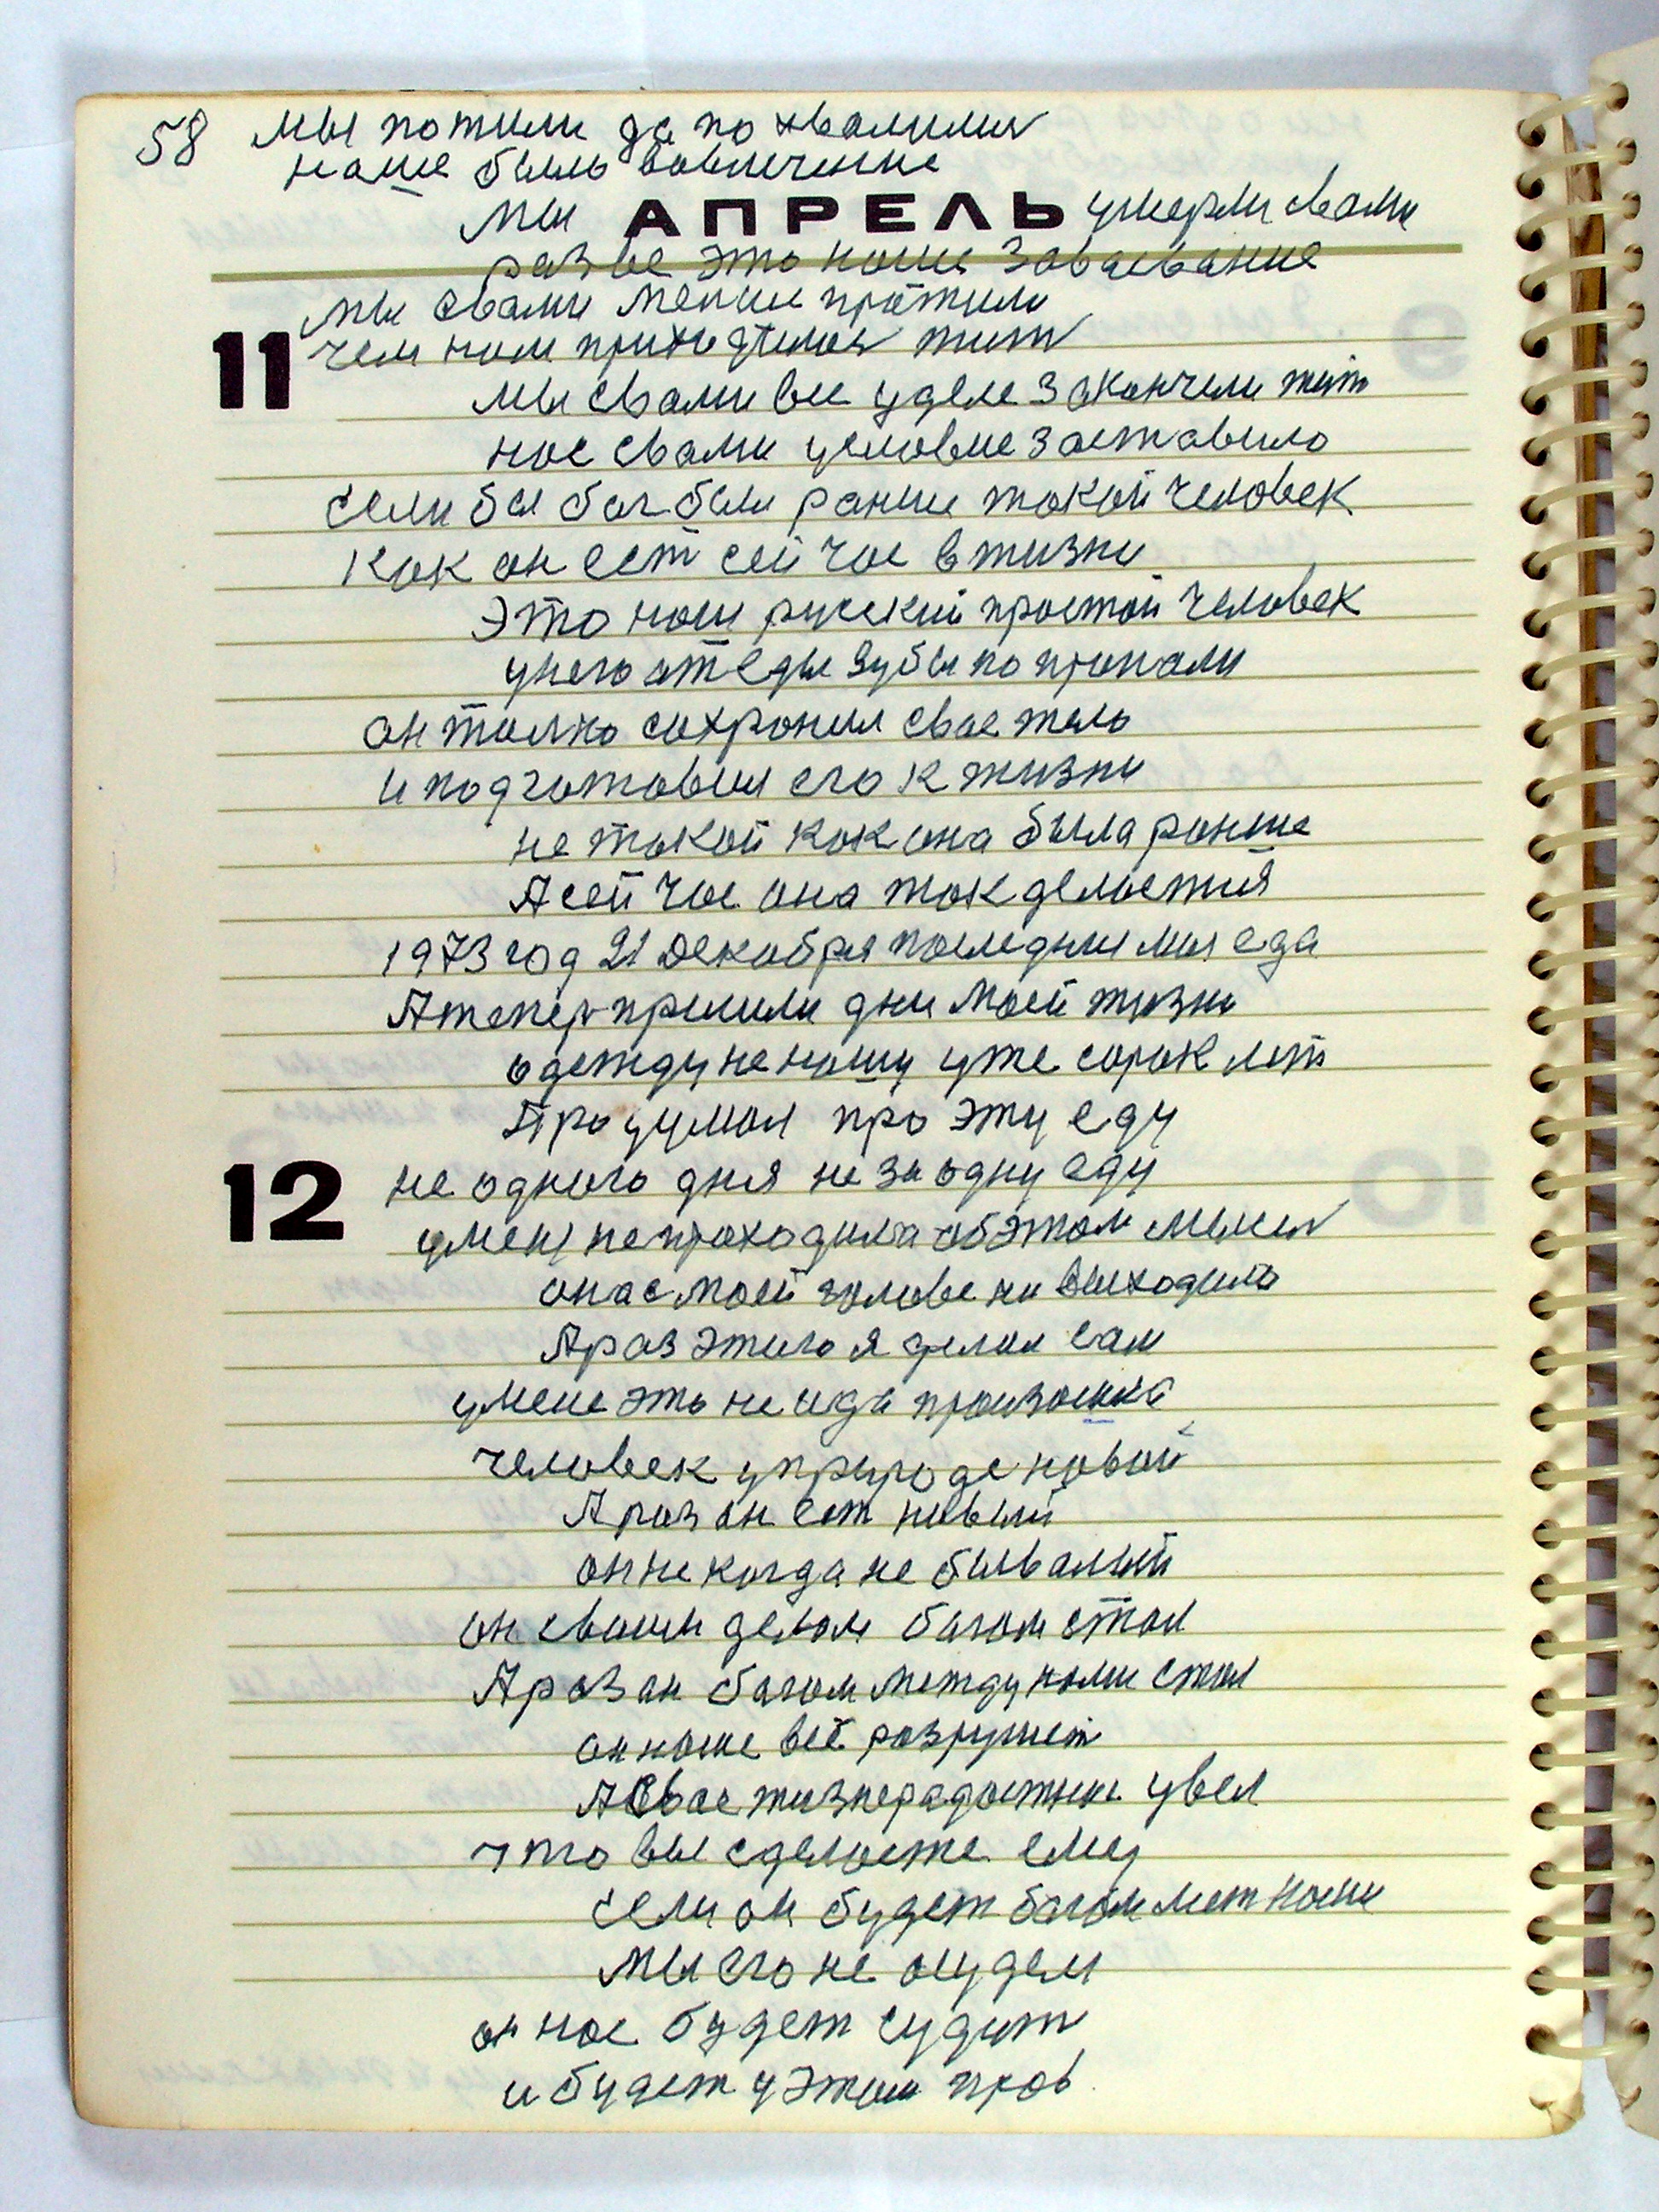 58 мы пожили да по хвалилис
наше былы вовличение
мы АПРЕЛЬ умерли свами
развее это наше завоевание
мы свами меньше прожили
11 чем нам приходилос жит
мы свами все у деле закончели жить
нас свами условие заставило
если бы бог был ранше такой человек
как он ест сей час в жизни
это наш руский простой человек
унего от еды зубы по пропали
он толко сохронил свае тело
и подготовил его к жизни
не такой как она была ранше
А сей час она так делается
1973 год 21 декабря последния моя еда
А тепер пришли дни моей жизни
одежду не ношу уже сорок лет
Продумал про эту еду
12 не одного дня не за одну еду
умену непроходила обэтом мысел
она с моей голове ни выходила
А раз этого я делал сам
умене это не игда произошла
человек уприроде новой
А раз он ест новый
он не когда не бывалый
он своим делом багом стал
А раз он богом между нами стал
он наше всё разрушет
А свае жизнерадостное увел
что вы сделаете ему
если он будет богом меж нами
мы его не осудем
он нас будет судит
и будет уэтом прав